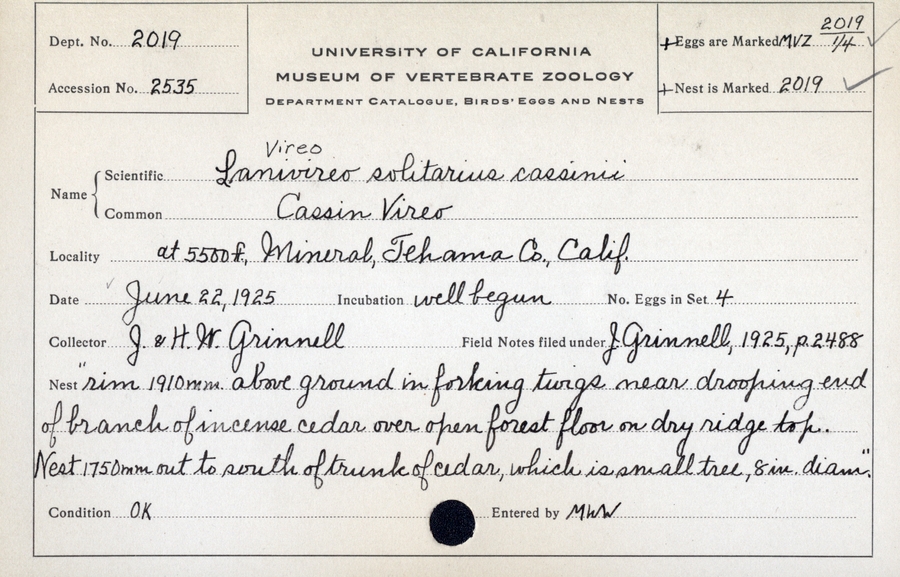 Dept. No. 2019
Accession No. 2535
UNIVERSITY OF CALIFORNIA
MUSEUM OF VERTEBRATE ZOOLOGY
DEPARTMENT CATALOGUE, BIRDS' EGGS AND NESTS
+Eggs are Marked MVZ 2019 1/4 ✓
+Nest is Marked 2019 ✓
Vireo
Name { Scientific Lanivireo solitarius cassinii
Common Cassin Vireo
Locality at 5500 ft, Mineral, Tehama Co., Calif.
Date ✓ June 22, 1925 Incubation well begun No. Eggs in Set 4
Collector J. & H. W. Grinnell Field Notes filed under J. Grinnell, 1925, p. 2488
Nest "rim 1910mm. above ground in forking twigs near drooping end
of branch of incense cedar over open forest floor on dry ridge top.
Nest 1750mm out to south of trunk of cedar, which is small tree, 8 in. diam".
Condition OK Entered by MWW